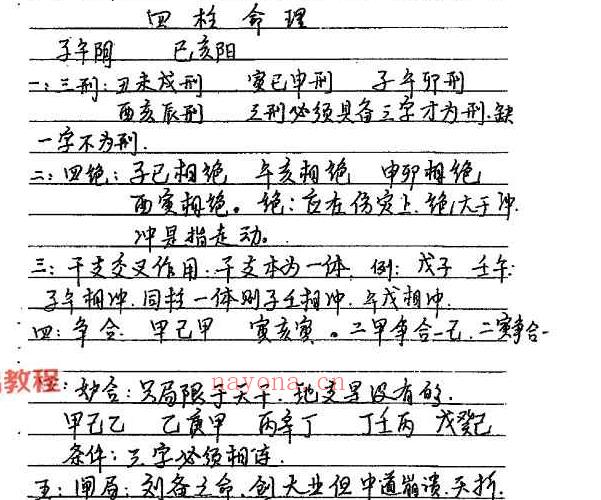 四柱命理
子午阴 巳亥阳
一:三刑:丑未戌刑 寅巳申刑 子午卯刑
酉亥辰刑 三刑必须具备三字才为刑.缺
一字不为刑.
二:四绝:子巳相绝 午亥相绝 申卯相绝
酉寅相绝。绝:应在伤灾上.绝大于冲
冲是指走动。
三:干支交叉作用.干支本为一体.例:戊子 壬午
子午相冲.同柱一体则子壬相冲.午戊相冲.
四:争合.甲己甲 寅亥寅。二甲争合一己.二寅争合一
教程
nayona.cn
妒合:只局限于天干.地支是没有的.
甲己乙 乙庚甲 丙辛丁 丁壬丙 戊癸己
条件:三字必须相连.
五:闸局:刘备之命.创大业但中道崩溃.夭折.